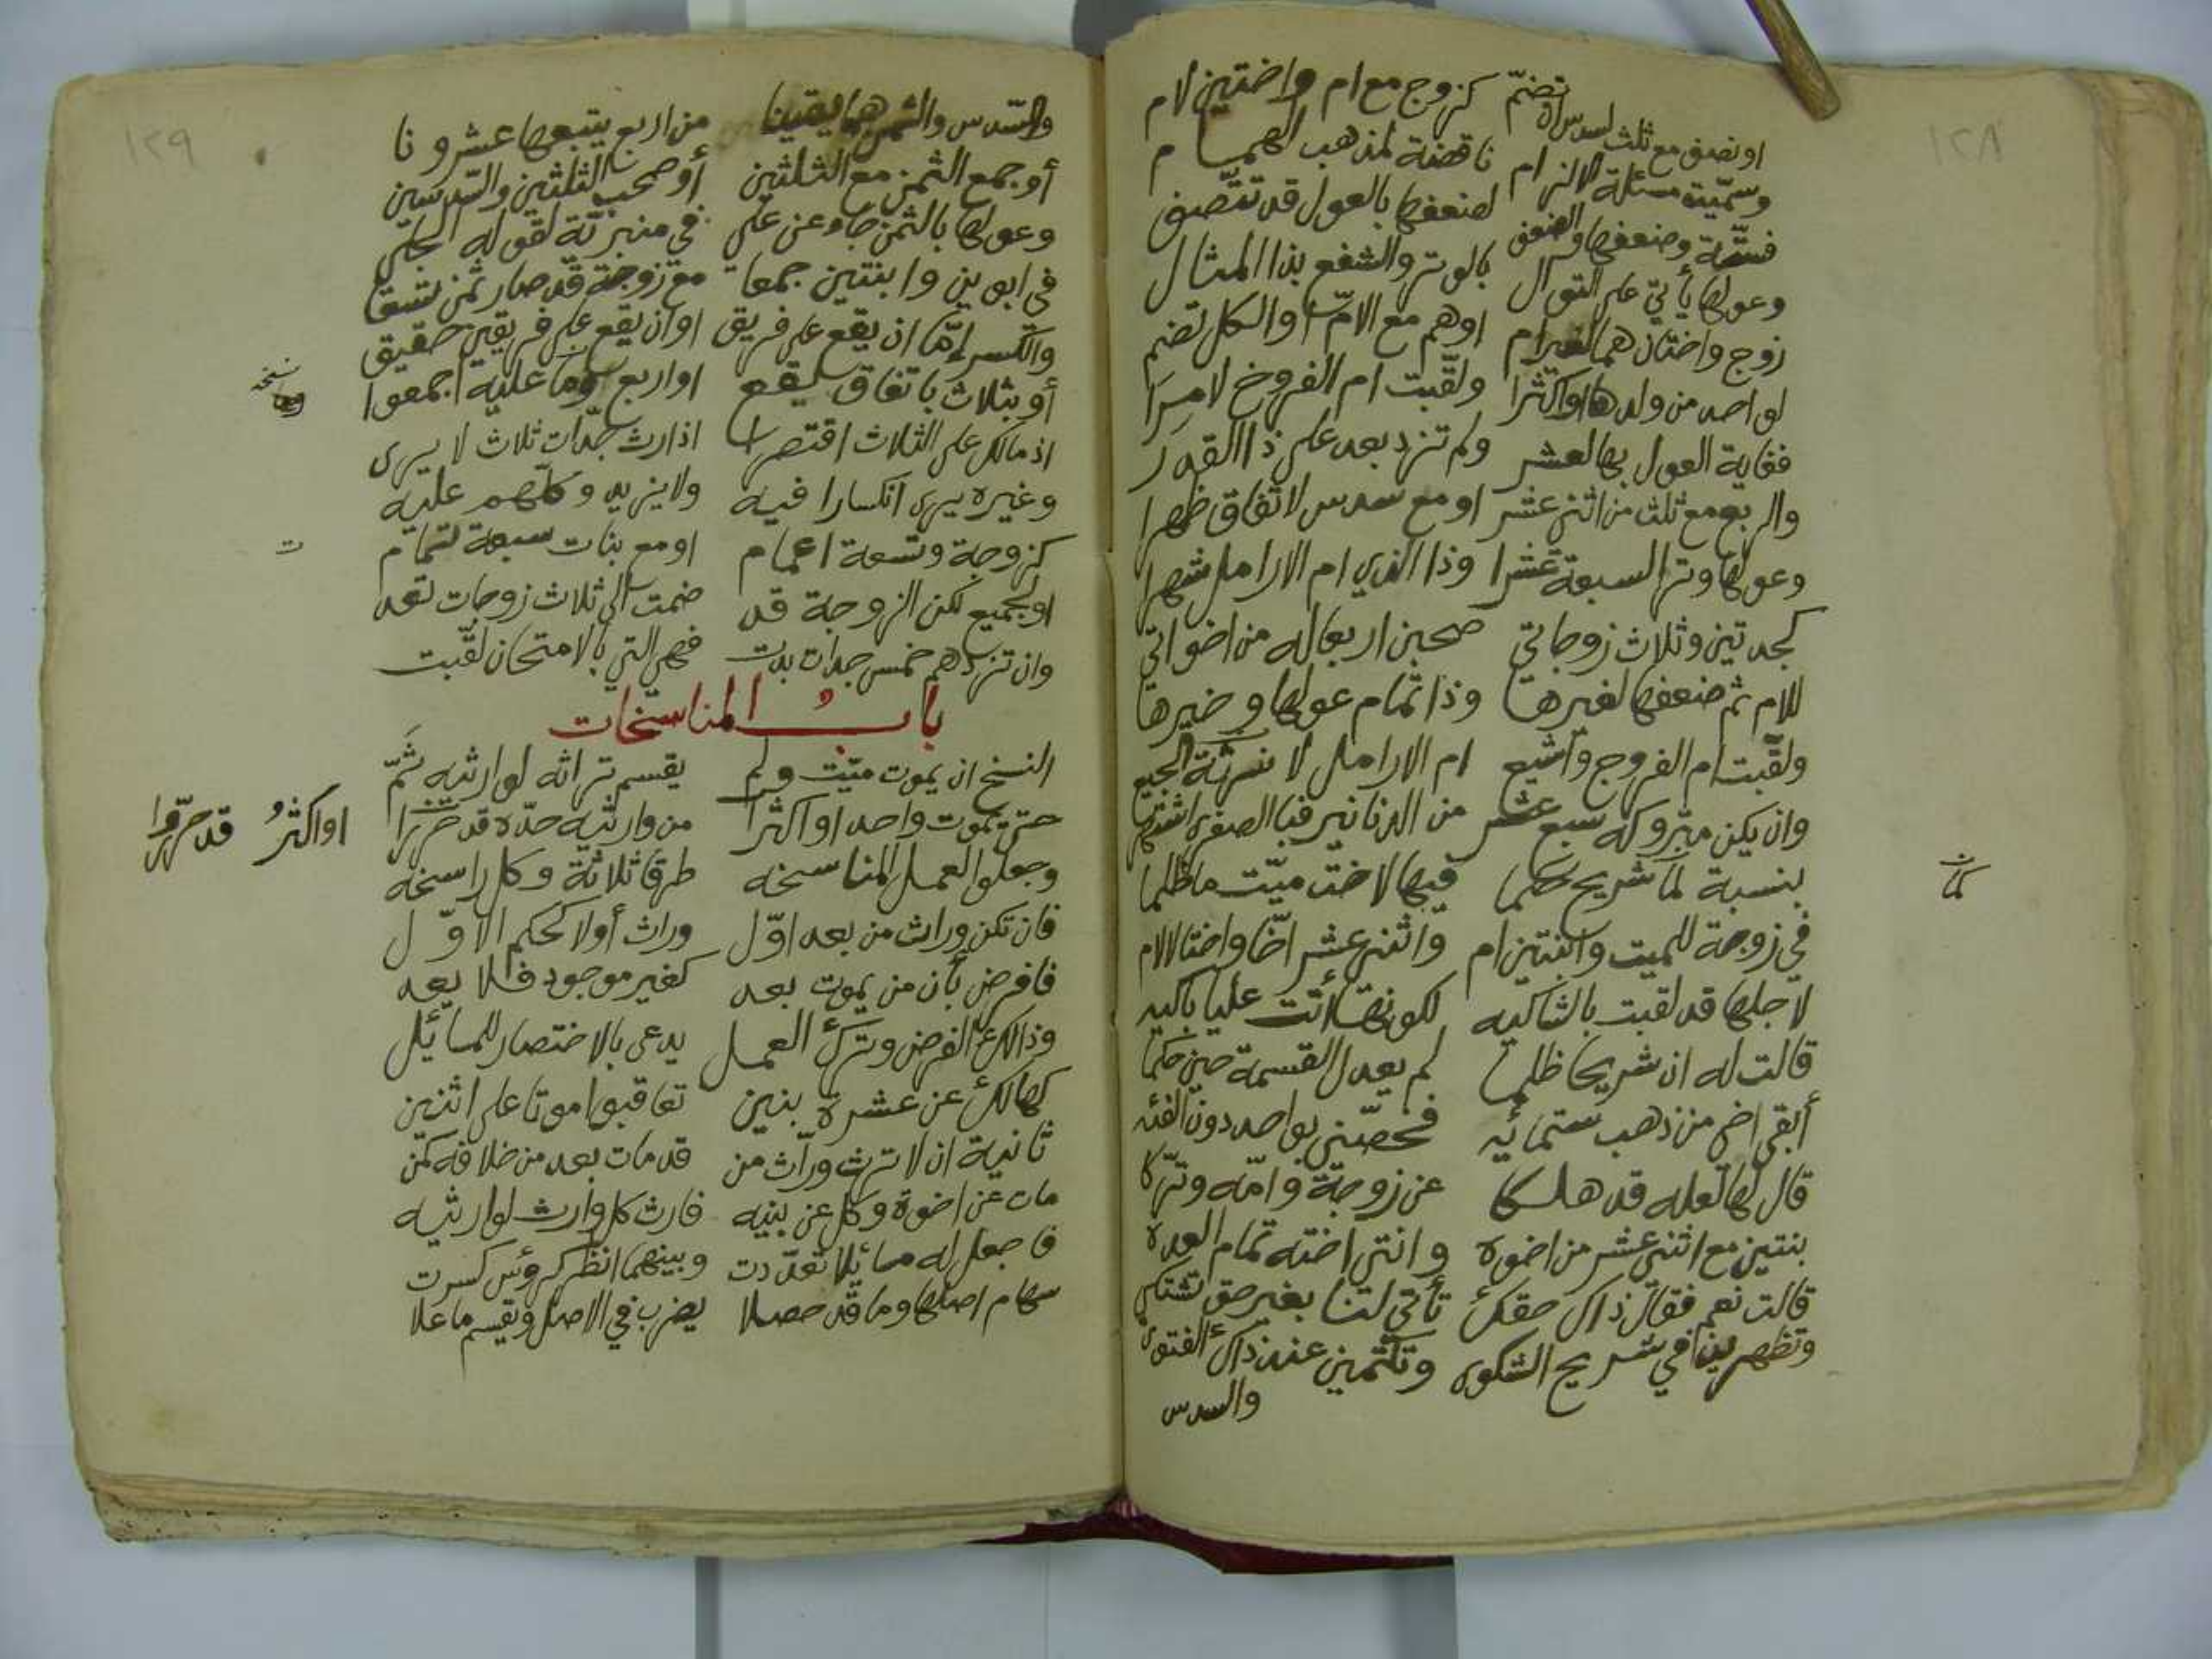 ١٢٨
او نصف مع ثلث لسدس الا تضمّ كزوج مع ام واختين لام
وسمّيت مسئلة الالزام ناقضة لمذهب الهمام
فستّة وضعفها والضعف لضعفها بالعول قد تتّصف
وعولها يأتي على التوال بالوتر والشفع بذا المثال
زوج واختان هما لغير ام اوهم مع الامّ او الكل تضم
لواحد من ولدها او اكثرا ولقّبت ام الفروخ لامرا
فغاية العول بها لعشر ولم تزد بعد على ذا القدر
والربع مع ثلث من اثني عشر او مع سدس لاتفاق ظهرا
وعولها وتر السبعة عشرا وذا الذي ام الارامل شهرا
كجدتين وثلاث زوجاتي صحبن اربعا له من اخواتي
للام ثم ضعفها لغيرها وذا تمام عولها وخيرها
ولقّبت ام الفروج واشيع ام الارامل لا نسوثة الجميع
وان يكن متروكه سبع عشر من الدنانير فبا الصغرى اشتهر
بنسبة لما شريح حكما فيها لاخت ميّت ما ظلما
في زوجة للميت وابنتين ام واثني عشر اخا واختا لا لام
لاجلها قد لقبت بالشاكيه لكونها أتت عليا باكيه
قالت له ان شريحا ظلما لم يعدل القسمة حين حكما
أبقى اخي من ذهب ستمائيه فخصّني بواحد دون الفئه
قال لها لعله قد هلكا عن زوجة وامّه وتركا
بنتين مع اثني عشر من اخوه وانتي اخته تمام العده
قالت نعم فقال ذاك حقك تأتي لنا بغير حق تشتكي
وتظهرين في شريح الشكوى وتكتمين عند ذاك الفتوى
والسدس
١٢٩
والسّدس والثمن هما يقينا من اربع يتبعها عشرونا
أو جمع الثمن مع الثلثين أو صحب الثلثين والسّدسين
وعولها بالثمن جاء عن علي في منبريّة لقوله الجلي
في ابوين وابنتين جمعا مع زوجة قد صار ثمن تسعا
والكسر إمّا ان يقع على فريق او ان يقع على فريقين حقيق
أو بثلاث باتفاق يقع او اربع وما عليه اجمعوا
نسخة
اذ مالك على الثلاث اقتصرا اذ ارث جدّات ثلاث لا يرى
وغيره يرى انكسارا فيه ولا يزيد وكلّهم عليه
كزوجة وتسعة اعمام او مع بنات سبعة تمام
او الجميع لكن الزوجة قد ضمت الى ثلاث زوجات تعد
وان تزدهم خمس جدات بدت فهي التي بالامتحان لقّبت
بابُ المناسخات
النسخ ان يموت ميّت ولم يقسم تراثه لوارثيه ثمّ
حتى يموت واحد او اكثرا من وارثيه حدّه قد حررا
او اكثرُ قد حرّروا
وجعلوا العمل المناسخه طرقا ثلاثة وكل راسخه
فان تكن وراث من بعد اوّل وراث أولا كحكم الاوّل
فافرض بأن من يموت بعد كغير موجود فلا يعد
وذالك الفرض وترك العمل يدعى بالاختصار للمسائل
كهالك عن عشرة بنين تعاقبوا موتا على اثنين
ثانية ان لا ترث ورّاث من قد مات بعد من خلافه كمن
مات عن اخوة وكل عن بنيه فارث كل وارث لوارثيه
فاجعل له مسائلا تعدّدت وبينهما انظر كرؤس كسرت
سهام اصلها وما قد حصلا يضرب في الاصل وتقسم ما علا